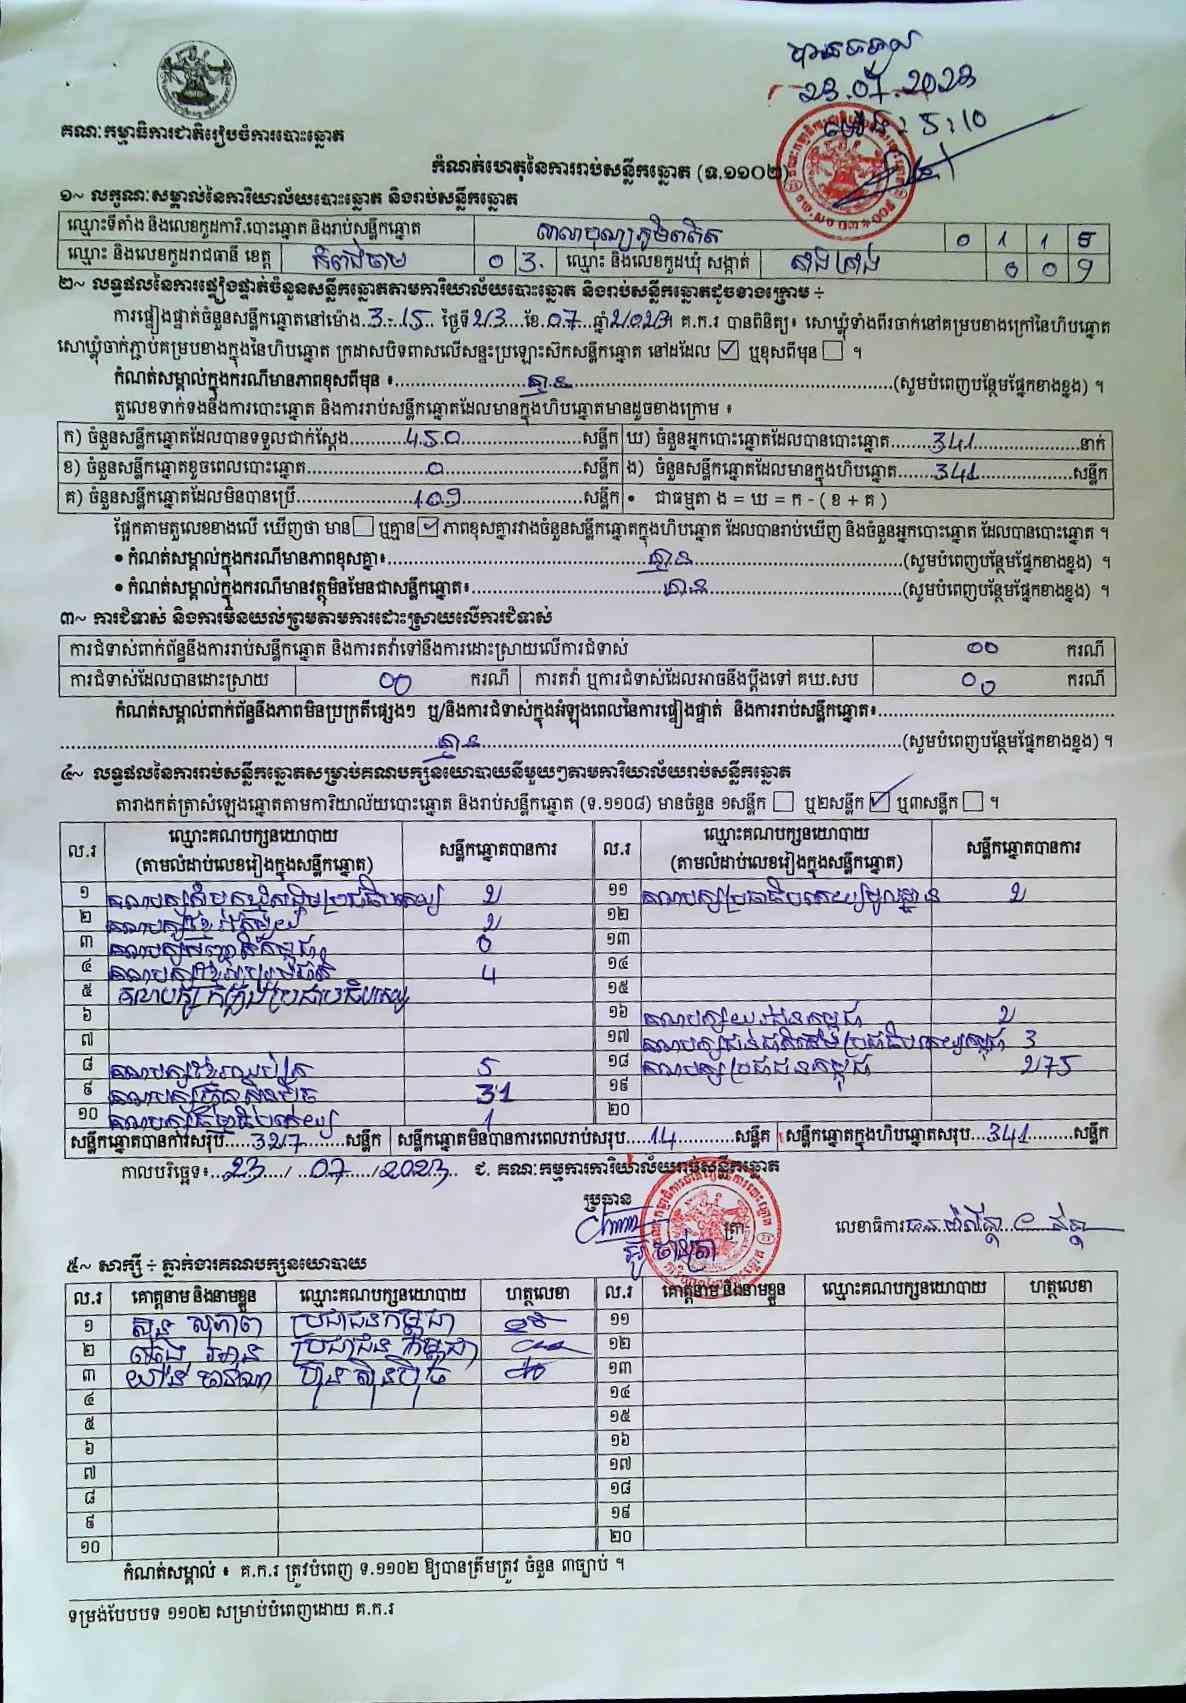 បានទទួល
23.07.2023
ម៉ោង: 5:10
គណៈកម្មាធិការជាតិរៀបចំការបោះឆ្នោត
កំណត់ហេតុនៃការរាប់សន្លឹកឆ្នោត (ទ.១១០២)
១~ លក្ខណៈសម្គាល់នៃការិយាល័យបោះឆ្នោត និងរាប់សន្លឹកឆ្នោត
ឈ្មោះទីតាំង និងលេខកូដការិ.បោះឆ្នោត និងរាប់សន្លឹកឆ្នោត 0 1 1 5
ឈ្មោះ និងលេខកូដរាជធានី ខេត្ត កំពង់ចាម 0 3. ឈ្មោះ និងលេខកូដឃុំ សង្កាត់ 0 0 9
២~ លទ្ធផលនៃការផ្ទៀងផ្ទាត់ចំនួនសន្លឹកឆ្នោតតាមការិយាល័យបោះឆ្នោត និងរាប់សន្លឹកឆ្នោតដូចខាងក្រោម ÷
ការផ្ទៀងផ្ទាត់ចំនួនសន្លឹកឆ្នោតនៅម៉ោង 3-15 ថ្ងៃទី 23 ខែ 07 ឆ្នាំ 2023 គ.ក.រ បានពិនិត្យ៖ សោឃ្លុំទាំងពីរចាក់នៅគម្របខាងក្រៅនៃហិបឆ្នោត
សោឃ្លុំចាក់ភ្ជាប់គម្របខាងក្នុងនៃហិបឆ្នោត ក្រដាសបិទពាសលើសន្ទះប្រឡោះស៊កសន្លឹកឆ្នោត នៅដដែល ☑ ឬខុសពីមុន ☐ ។
កំណត់សម្គាល់ក្នុងករណីមានភាពខុសពីមុន ៖ គ្មាន (សូមបំពេញបន្ថែមផ្នែកខាងខ្នង) ។
តួលេខទាក់ទងនឹងការបោះឆ្នោត និងការរាប់សន្លឹកឆ្នោតដែលមានក្នុងហិបឆ្នោតមានដូចខាងក្រោម ៖
ក) ចំនួនសន្លឹកឆ្នោតដែលបានទទួលជាក់ស្តែង 450 សន្លឹក ឃ) ចំនួនអ្នកបោះឆ្នោតដែលបានបោះឆ្នោត 341 នាក់
ខ) ចំនួនសន្លឹកឆ្នោតខូចពេលបោះឆ្នោត 0 សន្លឹក ង) ចំនួនសន្លឹកឆ្នោតដែលមានក្នុងហិបឆ្នោត 341 សន្លឹក
គ) ចំនួនសន្លឹកឆ្នោតដែលមិនបានប្រើ 109 សន្លឹក • ជាធម្មតា ង = ឃ = ក - ( ខ + គ )
ផ្អែកតាមតួលេខខាងលើ ឃើញថា មាន ☐ ឬគ្មាន ☑ ភាពខុសគ្នារវាងចំនួនសន្លឹកឆ្នោតក្នុងហិបឆ្នោត ដែលបានរាប់ឃើញ និងចំនួនអ្នកបោះឆ្នោត ដែលបានបោះឆ្នោត ។
• កំណត់សម្គាល់ក្នុងករណីមានភាពខុសគ្នា៖ គ្មាន (សូមបំពេញបន្ថែមផ្នែកខាងខ្នង) ។
• កំណត់សម្គាល់ក្នុងករណីមានវត្ថុមិនមែនជាសន្លឹកឆ្នោត៖ គ្មាន (សូមបំពេញបន្ថែមផ្នែកខាងខ្នង) ។
៣~ ការជំទាស់ និងការមិនយល់ព្រមតាមការដោះស្រាយលើការជំទាស់
ការជំទាស់ពាក់ព័ន្ធនឹងការរាប់សន្លឹកឆ្នោត និងការតវ៉ាទៅនឹងការដោះស្រាយលើការជំទាស់ 00 ករណី
ការជំទាស់ដែលបានដោះស្រាយ 00 ករណី ការតវ៉ា ឬការជំទាស់ដែលអាចនឹងប្តឹងទៅ គឃ.សប 00 ករណី
កំណត់សម្គាល់ពាក់ព័ន្ធនឹងភាពមិនប្រក្រតីផ្សេងៗ ឬ/និងការជំទាស់ក្នុងអំឡុងពេលនៃការផ្ទៀងផ្ទាត់ និងការរាប់សន្លឹកឆ្នោត៖
គ្មាន (សូមបំពេញបន្ថែមផ្នែកខាងខ្នង) ។
៤~ លទ្ធផលនៃការរាប់សន្លឹកឆ្នោតសម្រាប់គណបក្សនយោបាយនីមួយៗតាមការិយាល័យរាប់សន្លឹកឆ្នោត
តារាងកត់ត្រាសំឡេងឆ្នោតតាមការិយាល័យបោះឆ្នោត និងរាប់សន្លឹកឆ្នោត (ទ.១១០៨) មានចំនួន ១សន្លឹក ☐ ឬ២សន្លឹក ☑ ឬ៣សន្លឹក ☐ ។
ល.រ ឈ្មោះគណបក្សនយោបាយ (តាមលំដាប់លេខរៀងក្នុងសន្លឹកឆ្នោត) សន្លឹកឆ្នោតបានការ ល.រ ឈ្មោះគណបក្សនយោបាយ (តាមលំដាប់លេខរៀងក្នុងសន្លឹកឆ្នោត) សន្លឹកឆ្នោតបានការ
១ 2 ១១ គណបក្សប្រជាធិបតេយ្យមូលដ្ឋាន 2
២ គណបក្សខ្មែរ 2 ១២
៣ 0 ១៣
៤ គណបក្សខ្មែររួបរួមជាតិ 4 ១៤
៥ ១៥
៦ ១៦ គណបក្សយុវជនកម្ពុជា 2
៧ ១៧ 3
៨ 5 ១៨ គណបក្សប្រជាជនកម្ពុជា 275
៩ គណបក្សហ៊្វុនស៊ិនប៉ិច 31 ១៩
១០ គណបក្សធម្មាធិបតេយ្យ 1 ២០
សន្លឹកឆ្នោតបានការសរុប 327 សន្លឹក សន្លឹកឆ្នោតមិនបានការពេលរាប់សរុប 14 សន្លឹក សន្លឹកឆ្នោតក្នុងហិបឆ្នោតសរុប 341 សន្លឹក
កាលបរិច្ឆេទ៖ 23 / 07 / 2023 ជ. គណៈកម្មការការិយាល័យរាប់សន្លឹកឆ្នោត
ប្រធាន ត្រា លេខាធិការ
៥~ សាក្សី ÷ ភ្នាក់ងារគណបក្សនយោបាយ
ល.រ គោត្តនាម និងនាមខ្លួន ឈ្មោះគណបក្សនយោបាយ ហត្ថលេខា ល.រ គោត្តនាម និងនាមខ្លួន ឈ្មោះគណបក្សនយោបាយ ហត្ថលេខា
១ ប្រជាជនកម្ពុជា ១១
២ ប្រជាជនកម្ពុជា ១២
៣ ហ៊្វុនស៊ិនប៉ិច ១៣
៤ ១៤
៥ ១៥
៦ ១៦
៧ ១៧
៨ ១៨
៩ ១៩
១០ ២០
កំណត់សម្គាល់ ៖ គ.ក.រ ត្រូវបំពេញ ទ.១១០២ ឱ្យបានត្រឹមត្រូវ ចំនួន ៣ច្បាប់ ។
ទម្រង់បែបបទ ១១០២ សម្រាប់បំពេញដោយ គ.ក.រ